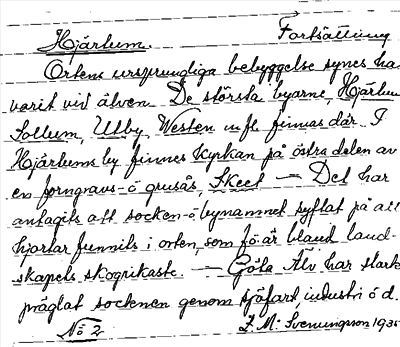 Hjärtum. Fortsättning
Ortens ursprungliga bebyggelse synes ha
varit vid älven. De största byarne, Hjärtum
Sollum, Utby, Westen m fl finnas där. I
Hjärtums by finnes Kyrkan på östra delen av
en forngravs-o grusås, Skeet — Det har
antagits att socken-o bynamnet syftat på att
hjortar funnits i orten, som fö är bland land-
skapets skogrikaste. — Göta Älv har stark
präglat socknen genom sjöfart industri o d.
No 2 J. M. Svenungson 1935